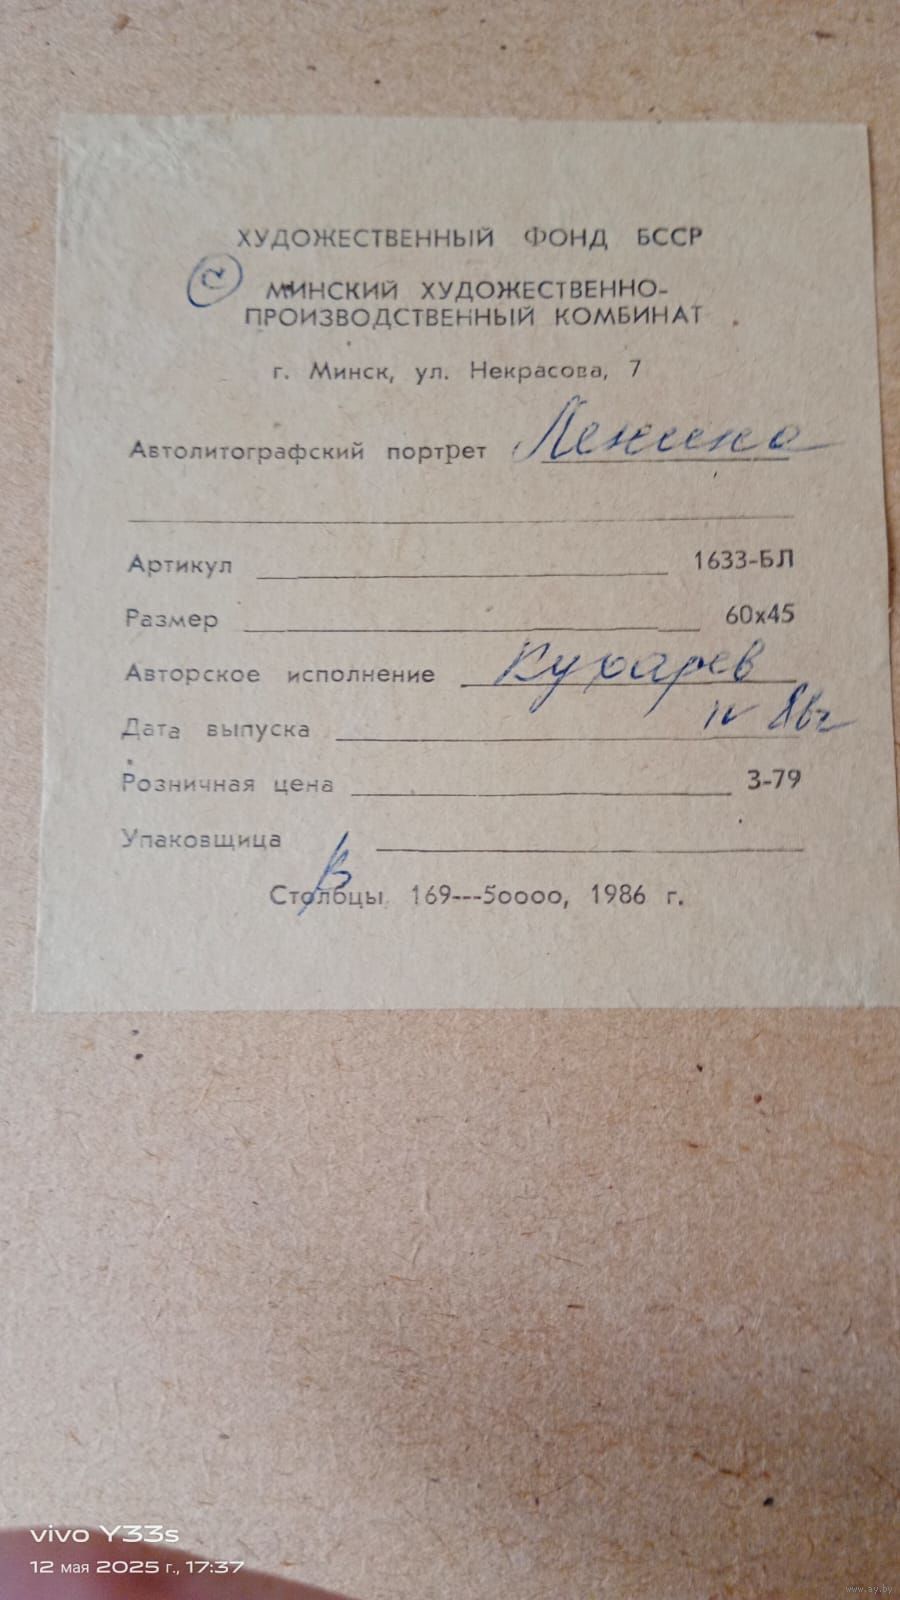 ХУДОЖЕСТВЕННЫЙ ФОНД БССР
МИНСКИЙ ХУДОЖЕСТВЕННО-
ПРОИЗВОДСТВЕННЫЙ КОМБИНАТ
г. Минск, ул. Некрасова, 7
Автолитографский портрет Ленина
Артикул 1633-БЛ
Размер 60х45
Авторское исполнение Кухарев
Дата выпуска IV
Розничная цена 3-79
Упаковщица
Столбцы 169---50000, 1986 г.
vivo Y33s
12 мая 2025 г., 17:37
www.ay.by